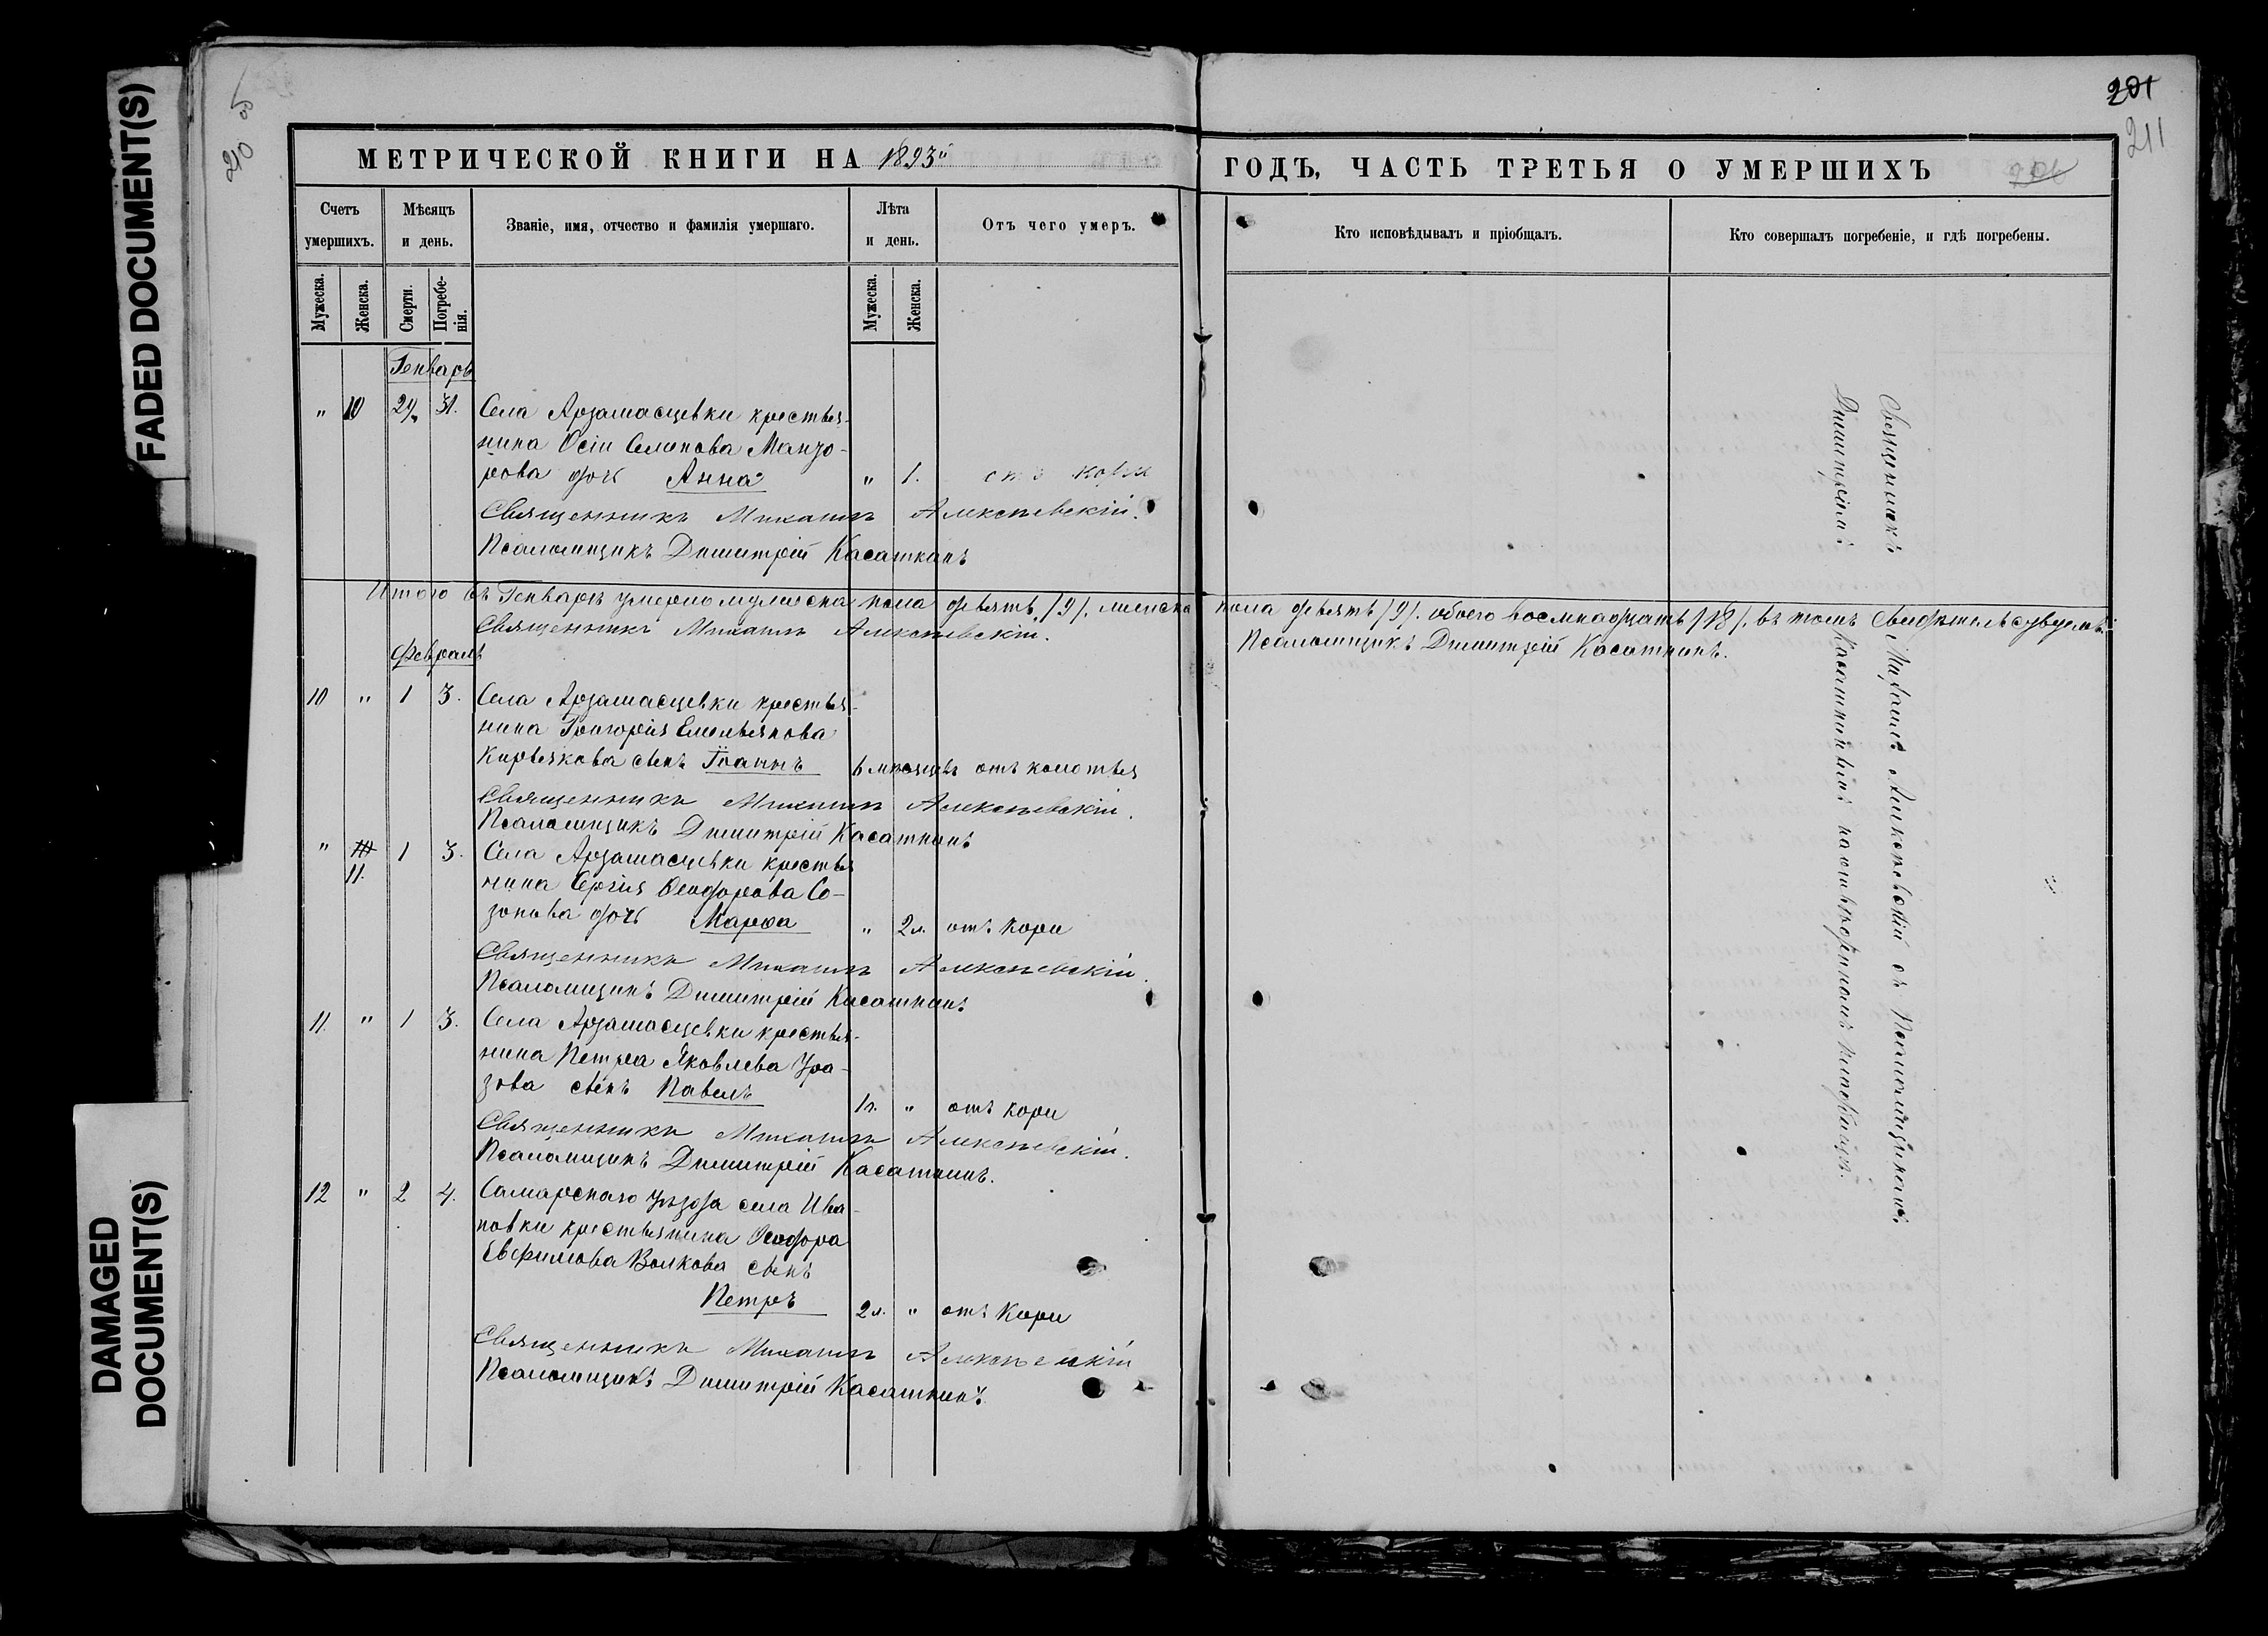 FADED DOCUMENT(S)
DAMAGED
DOCUMENT(S)
210
201
211
206
МЕТРИЧЕСКОЙ КНИГИ НА 1893й ГОДЪ, ЧАСТЬ ТРЕТЬЯ О УМЕРШИХЪ
Счетъ умершихъ.
Мѣсяцъ и день.
Званіе, имя, отчество и фамилія умершаго.
Лѣта и день.
Отъ чего умеръ.
Кто исповѣдывалъ и пріобщалъ.
Кто совершалъ погребеніе, и гдѣ погребены.
Мужеска.
Женска.
Смерти.
Погребе-
нія.
Мужеска.
Женска.
Генварь
" 10 29 31. Села Арзамасцевки крестья-
нина Осіи Семенова Манзо-
рова дочь Анна " 1. отъ кори
Священникъ Михаилъ Алексѣевскій.
Псаломщикъ Димитрій Касаткинъ
Итого въ Генварѣ умерло мужеска пола девять /9/. женска пола девять /9/. обоего восемнадцать /18/. въ томъ свидѣтельствуемъ:
Священникъ Михаилъ Алексѣевскій.
Псаломщикъ Димитрій Касаткинъ.
Февраль
10 " 1 3. Села Арзамасцевки крестья-
нина Григорія Емельянова
Кирьякова сынъ Іоаннъ 6 мѣсяцевъ отъ колотья
Священникъ Михаилъ Алексѣевскій.
Псаломщикъ Димитрій Касаткинъ
" 11. 1 3. Села Арзамасцевки крестья
нина Сергія Ѳеодорова Со-
зонова дочь Марѳа " 2л. отъ кори
Священникъ Михаилъ Алексѣевскій.
Псаломщикъ Димитрій Касаткинъ
11. " 1 3. Села Арзамасцевки крестья-
нина Петра Яковлева Ура-
зова сынъ Павелъ 1г. " отъ кори
Священникъ Михаилъ Алексѣевскій.
Псаломщикъ Димитрій Касаткинъ.
12 " 2 4. Самарскаго уѣзда села Ива-
новки крестьянина Ѳеодора
Евфимова Волкова сынъ
Петръ 2л. " отъ кори
Священникъ Михаилъ Алексѣевскій
Псаломщикъ Димитрій Касаткинъ.
Священникъ Михаилъ Алексѣевскій съ Псаломщикомъ
Димитріемъ Касаткинымъ на отведенномъ кладбищѣ.